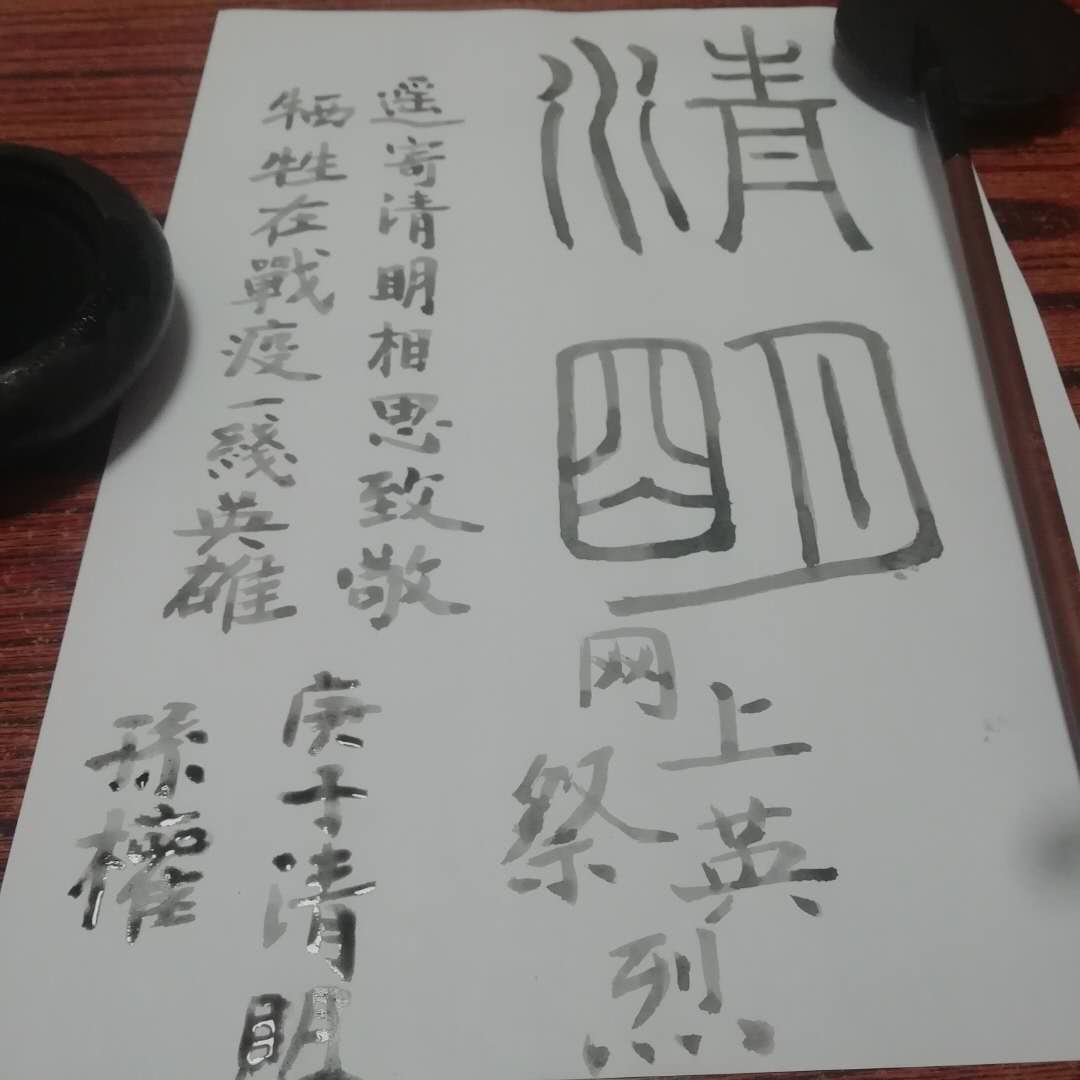 清明
网上祭英烈
遥寄清明相思致敬
牺牲在戰疫一綫英雄
庚子清明
孫權